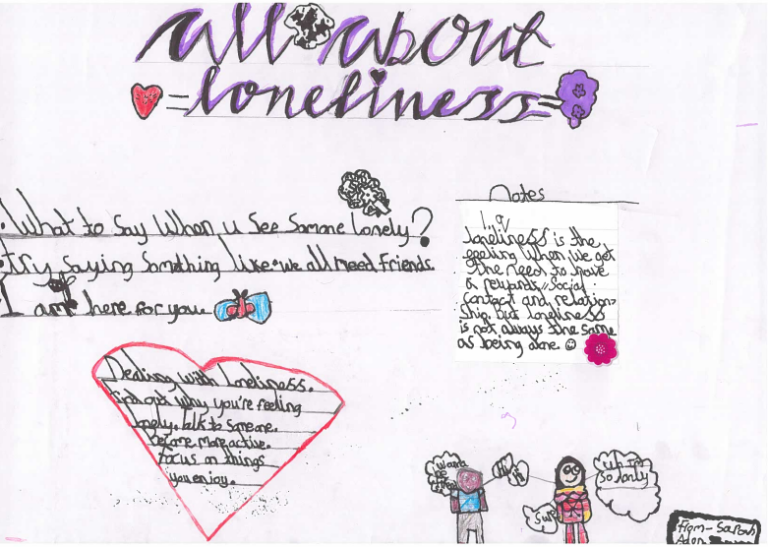 all about
loneliness
• What to Say When u See Somone lonely?
try saying Somthing like • we all need friends.
I am here for you
Notes
loneliness is the
feeling when we get
the need to have
a rewards social
contact and relation-
ship. but loneliness
is not always the same
as being alone.
Dealing with loneliness.
find out why you're feeling
lonely. talk to someone.
become more active.
focus on things
you enjoy.
Hi
Sure
So lonly
From - Sarah